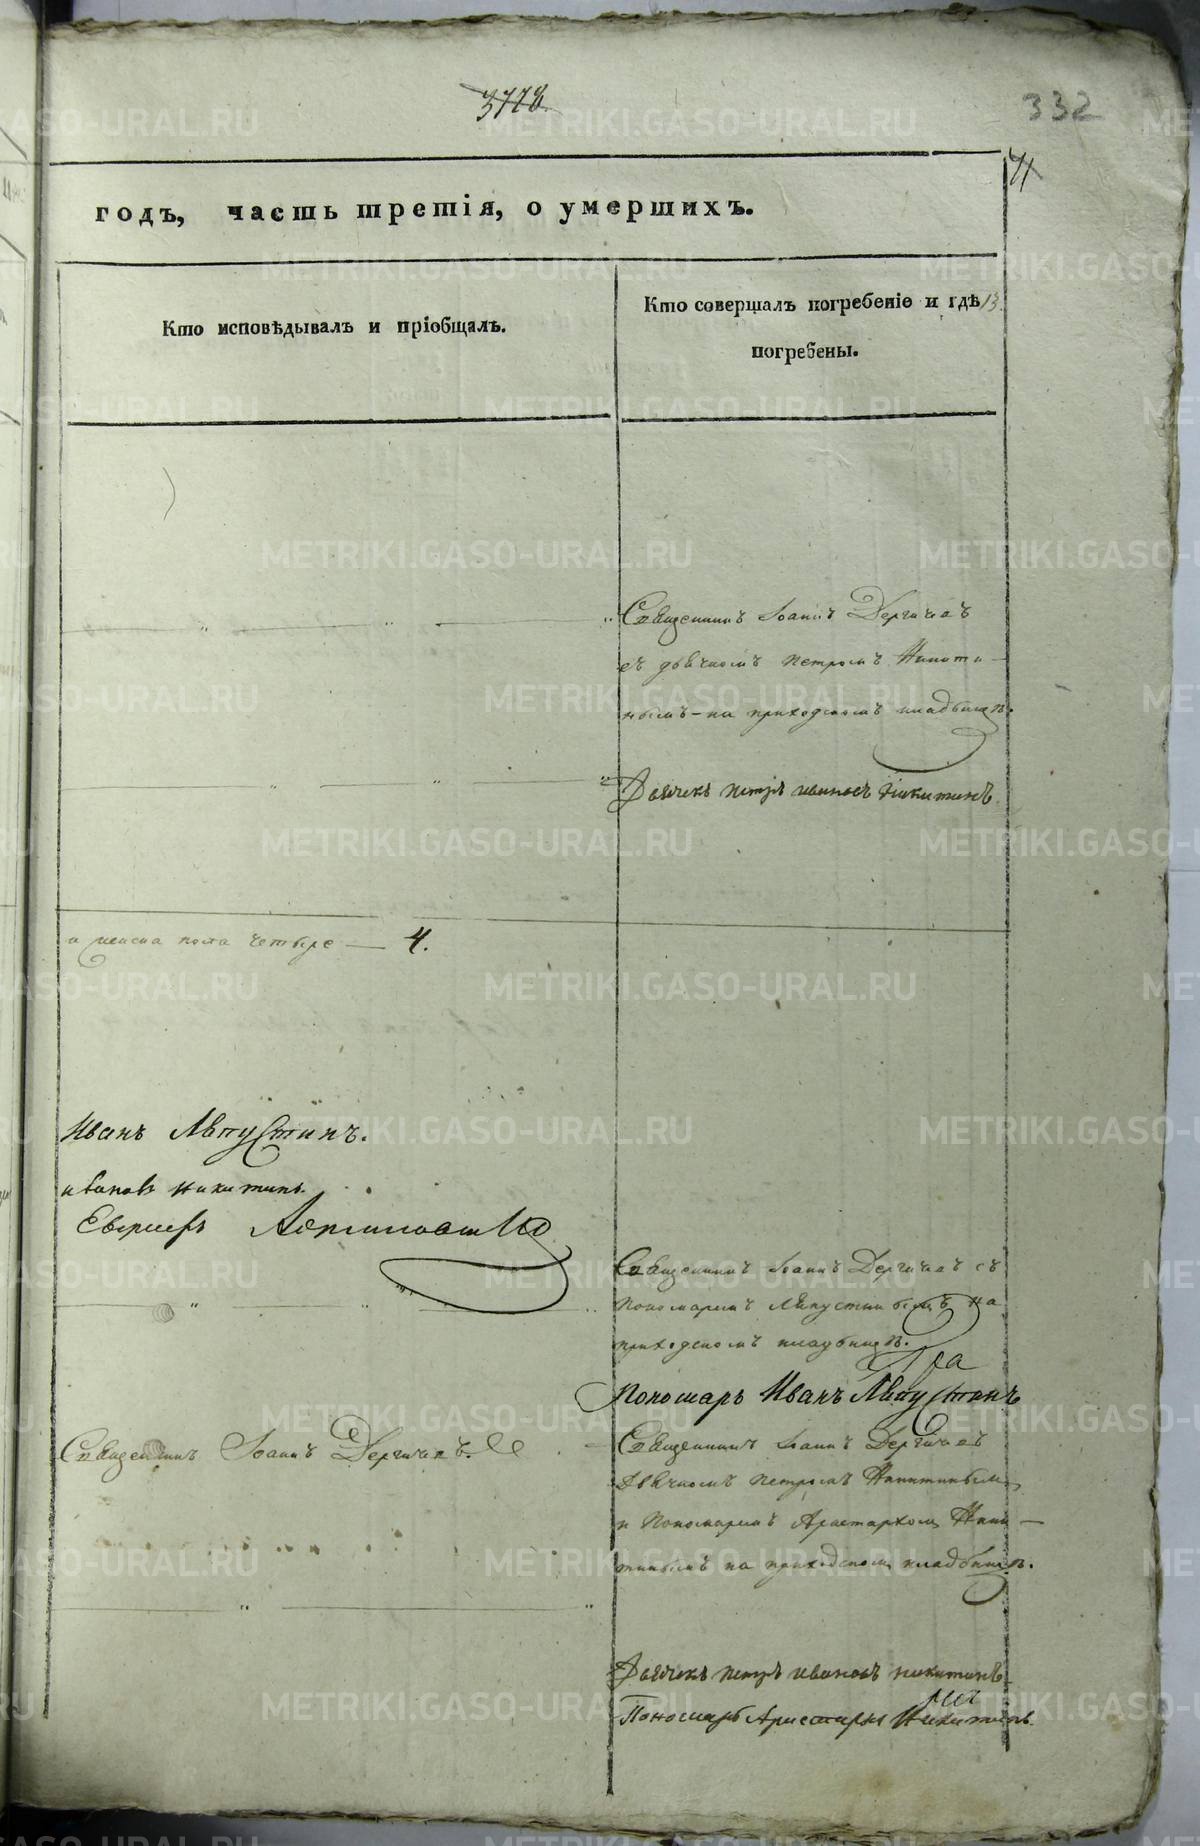 3778
332
71
годъ, часть третія, о умершихъ.
Кто исповѣдывалъ и пріобщалъ.
Кто совершалъ погребеніе и гдѣ 13.
погребены.
Священникъ Іоаннъ Дергачевъ
съ дьячкомъ Петромъ Никити-
нымъ - на приходскомъ кладбищѣ.
Дьячекъ Петръ Ивановъ Никитинъ
а женска пола четыре — 4.
Иванъ Августинъ.
Ивановъ Никитинъ.
Священникъ Іоаннъ Дергачевъ съ
пономаремъ Августинымъ на
приходскомъ кладбищѣ.
Пономарь Иванъ Августинъ
Священникъ Іоаннъ Дергачевъ.
Священникъ Іоаннъ Дергачевъ
Дьячкомъ Петромъ Никитинымъ
и Пономаремъ Аристархомъ Ники-
тинымъ на приходскомъ кладбищѣ.
Дьячекъ Петръ Ивановъ Никитинъ
Пономарь Аристархъ Никитинъ.
METRIKI.GASO-URAL.RU